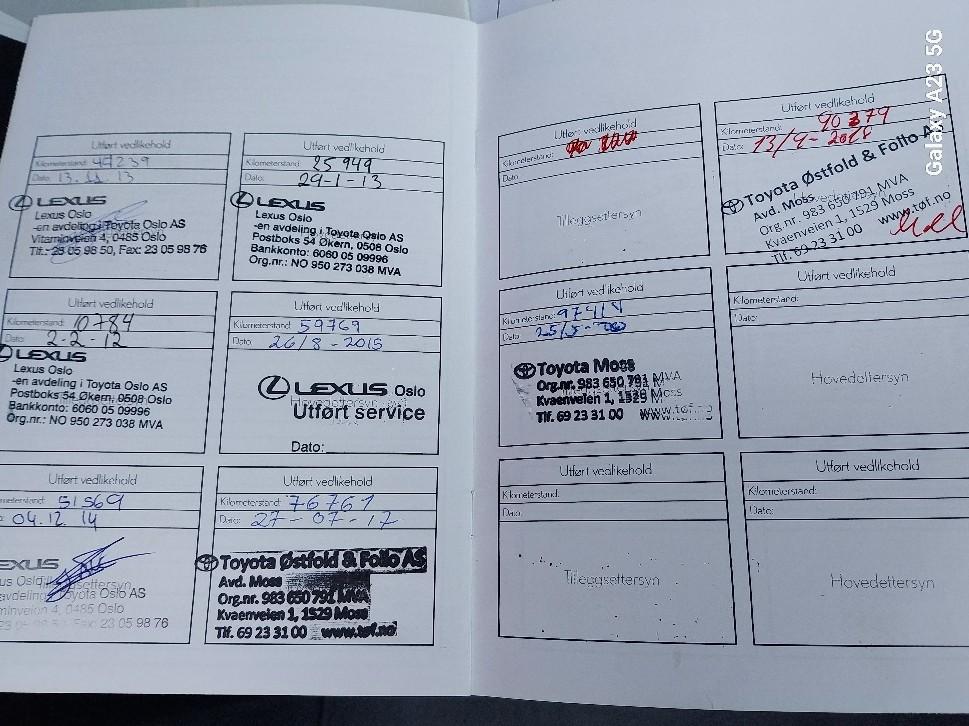 Utført vedlikehold
Kilometerstand: 47239
Dato: 13.11.13
LEXUS
Lexus Oslo
-en avdeling i Toyota Oslo AS
Vitaminveien 4, 0485 Oslo
Tlf.: 23 05 98 50, Fax: 23 05 98 76
Utført vedlikehold
Kilometerstand: 25 949
Dato: 29-1-13
LEXUS
Lexus Oslo
-en avdeling i Toyota Oslo AS
Postboks 54 Økern, 0508 Oslo
Bankkonto: 6060 05 09996
Org.nr.: NO 950 273 038 MVA
Utført vedlikehold
Kilometerstand: 10784
Dato: 2-2-12
LEXUS
Lexus Oslo
-en avdeling i Toyota Oslo AS
Postboks 54 Økern, 0508 Oslo
Bankkonto: 6060 05 09996
Org.nr.: NO 950 273 038 MVA
Utført vedlikehold
Kilometerstand: 59769
Dato: 26/8-2015
LEXUS Oslo
Utført service
Dato:
Utført vedlikehold
51569
04.12 14
EXUS
us Oslo
avdeling Toyota Oslo AS
minveien 4, 0485 Oslo
Fax: 23 05 98 76
Utført vedlikehold
Kilometerstand: 76761
Dato: 27-07-17
Toyota Østfold & Follo AS
Avd. Moss
Org.nr. 983 650 791 MVA
Kvaenveien 1, 1529 Moss
Tlf. 69 23 31 00 www.tøf.no
Utført vedlikehold
Kilometerstand:
Dato:
Tilleggsettersyn
Utført vedlikehold
Kilometerstand: 90379
Dato: 13/9-2018
Toyota Østfold & Follo A
Avd. Moss
Org.nr. 983 650 791 MVA
Kvaenveien 1, 1529 Moss
Tlf. 69 23 31 00 www.tøf.no
Utført vedlikehold
Kilometerstand:
Dato: 25/5-
Toyota Moss
Org.nr. 983 650 791 MVA
Kvaenveien 1, 1529 Moss
Tlf. 69 23 31 00 www.tøf.
Utført vedlikehold
Kilometerstand:
Dato:
Hovedettersyn
Utført vedlikehold
Kilometerstand:
Dato:
Tilleggsettersyn
Utført vedlikehold
Kilometerstand:
Dato:
Hovedettersyn
Galaxy A23 5G